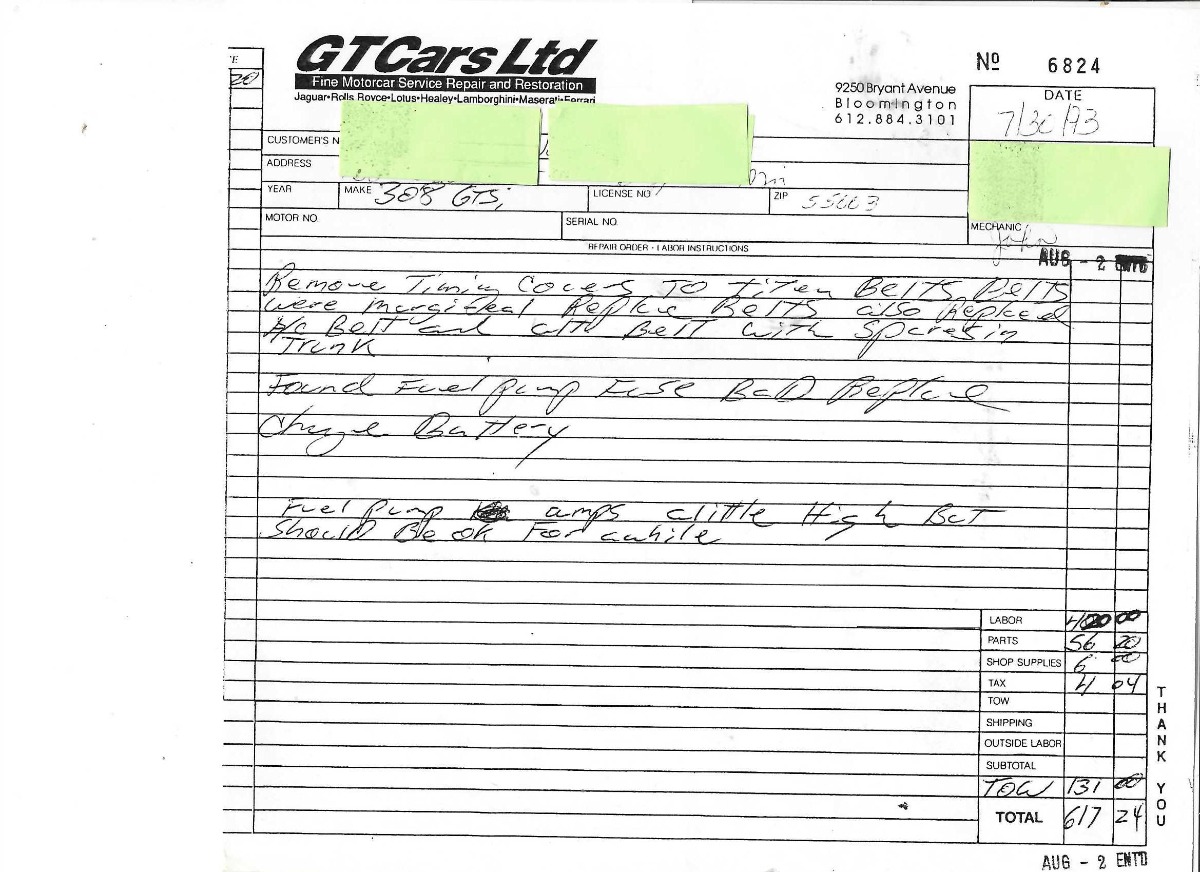 GTCars Ltd
Fine Motorcar Service Repair and Restoration
Jaguar•Rolls Royce•Lotus•Healey•Lamborghini•Maserati•Ferrari
9250 Bryant Avenue
Bloomington
612.884.3101
Nº 6824
DATE
7/30/93
20
CUSTOMER'S N
ADDRESS
YEAR
MAKE 308 GTSi
LICENSE NO
ZIP
MOTOR NO.
SERIAL NO.
MECHANIC
John
REPAIR ORDER - LABOR INSTRUCTIONS
AUG - 2 ENTD
Remove Timing Covers To Titen Belts, Belts
were marginal Replace Belts also Replaced
A/C Belt and alt Belt with Spares in
Trunk
Found Fuel pump Fuse Bad Replace
Charge Battery
Fuel pump amps a little High But
Should Be ok For awhile
LABOR 420 00
PARTS 56 20
SHOP SUPPLIES 6 00
TAX 4 04
TOW
SHIPPING
OUTSIDE LABOR
SUBTOTAL
TOW 131 00
TOTAL 617 24
THANK YOU
AUG - 2 ENTD